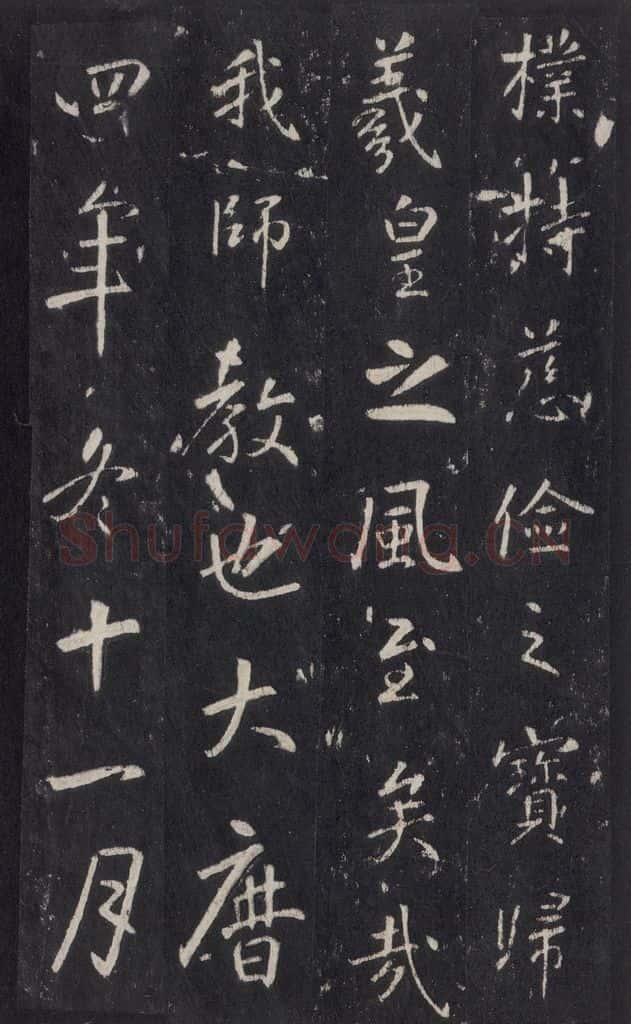 樸慈儉之寶歸
羲皇之風至矣哉
我師教也大曆
四年冬十一月
Shufawang.CN